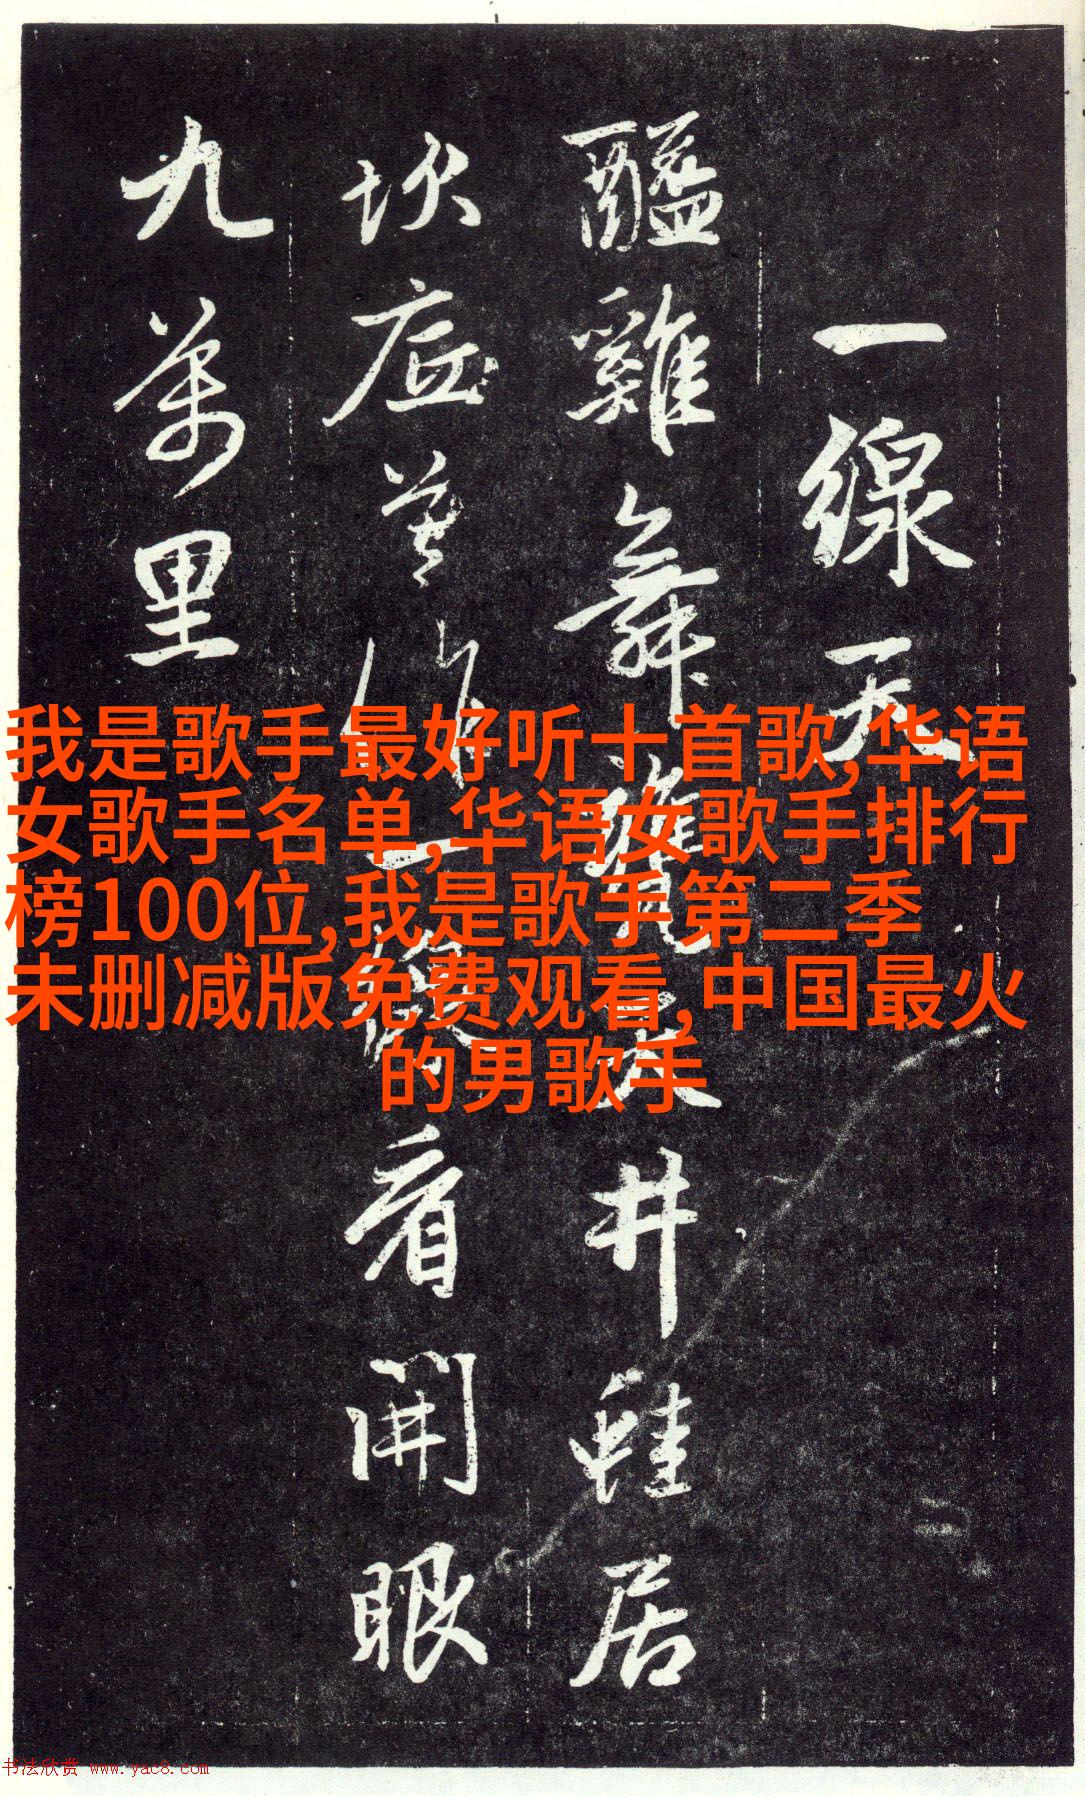 一線天
醯雞舞甕天井蛙居
坎底莫作一線看開眼
九萬里
我是歌手最好听十首歌,华语
女歌手名单,华语女歌手排行
榜100位,我是歌手第二季
未删减版免费观看,中国最火
的男歌手
书法欣赏 www.yac8.com